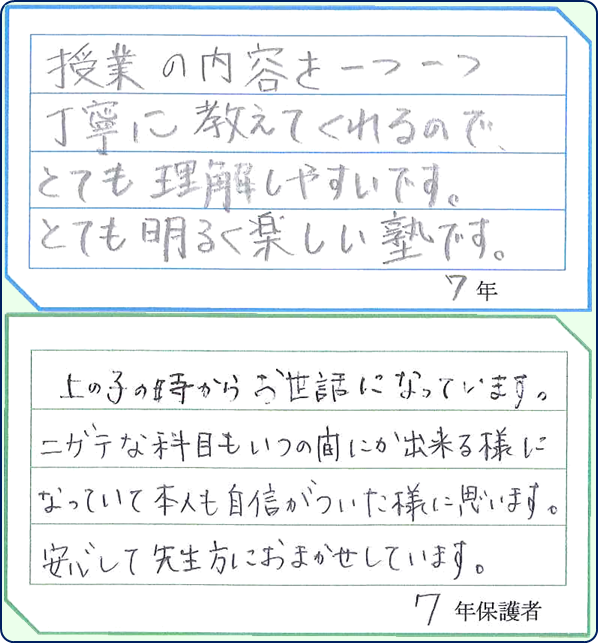 授業の内容を一つ一つ
丁寧に教えてくれるので、
とても理解しやすいです。
とても明るく楽しい塾です。
7年
上の子の時からお世話になっています。
ニガテな科目もいつの間にか出来る様に
なっていて本人も自信がついた様に思います。
安心して先生方におまかせしています。
7年保護者